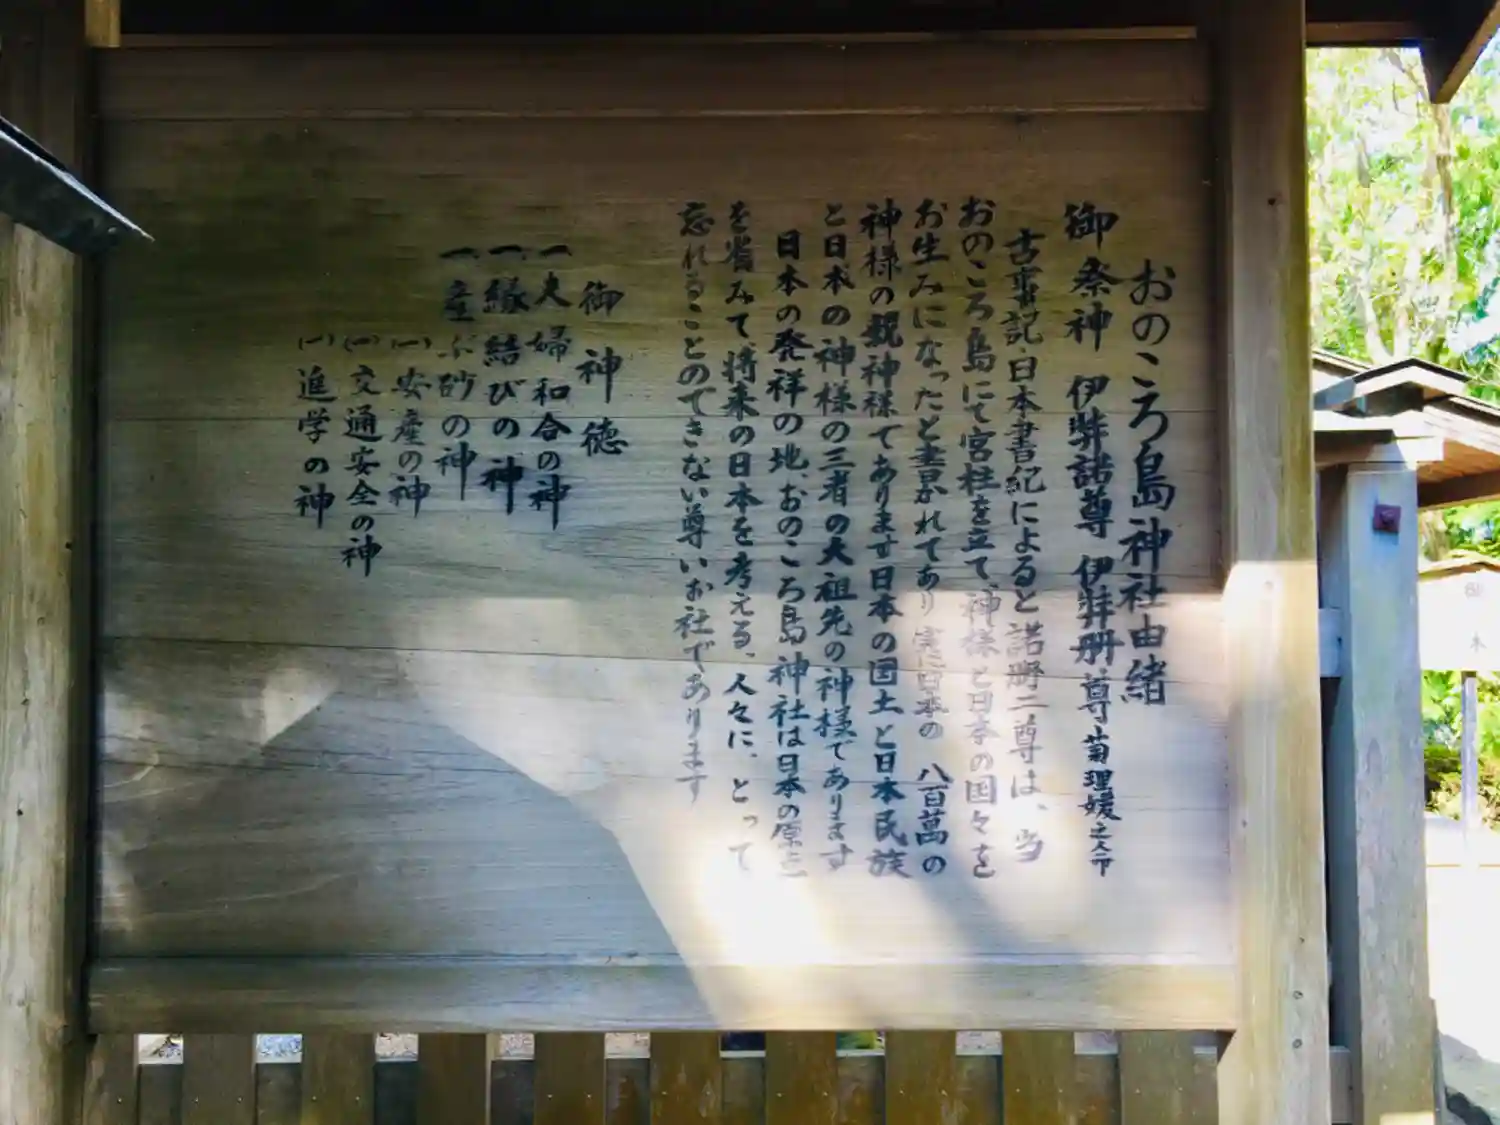 おのころ島神社由緒
御祭神 伊弉諾尊 伊弉册尊 菊理媛之命
古事記・日本書紀によると諾册二尊は、当
おのころ島にて宮柱を立て、神様と日本の国々を
お生みになったと書かれてあり 実に日本の 八百萬の
神様の親神様てあります日本の国土と日本民族
と日本の神様の三者の大祖先の神様であります
日本の発祥の地、おのころ島神社は日本の原点
を省みて、将来の日本を考える、人々に、とって
忘れることのできない尊いお社であります
御神徳
一、夫婦和合の神
一、縁結びの神
一、産ぶ砂の神
(一)安産の神
(一)交通安全の神
(一)進学の神
木